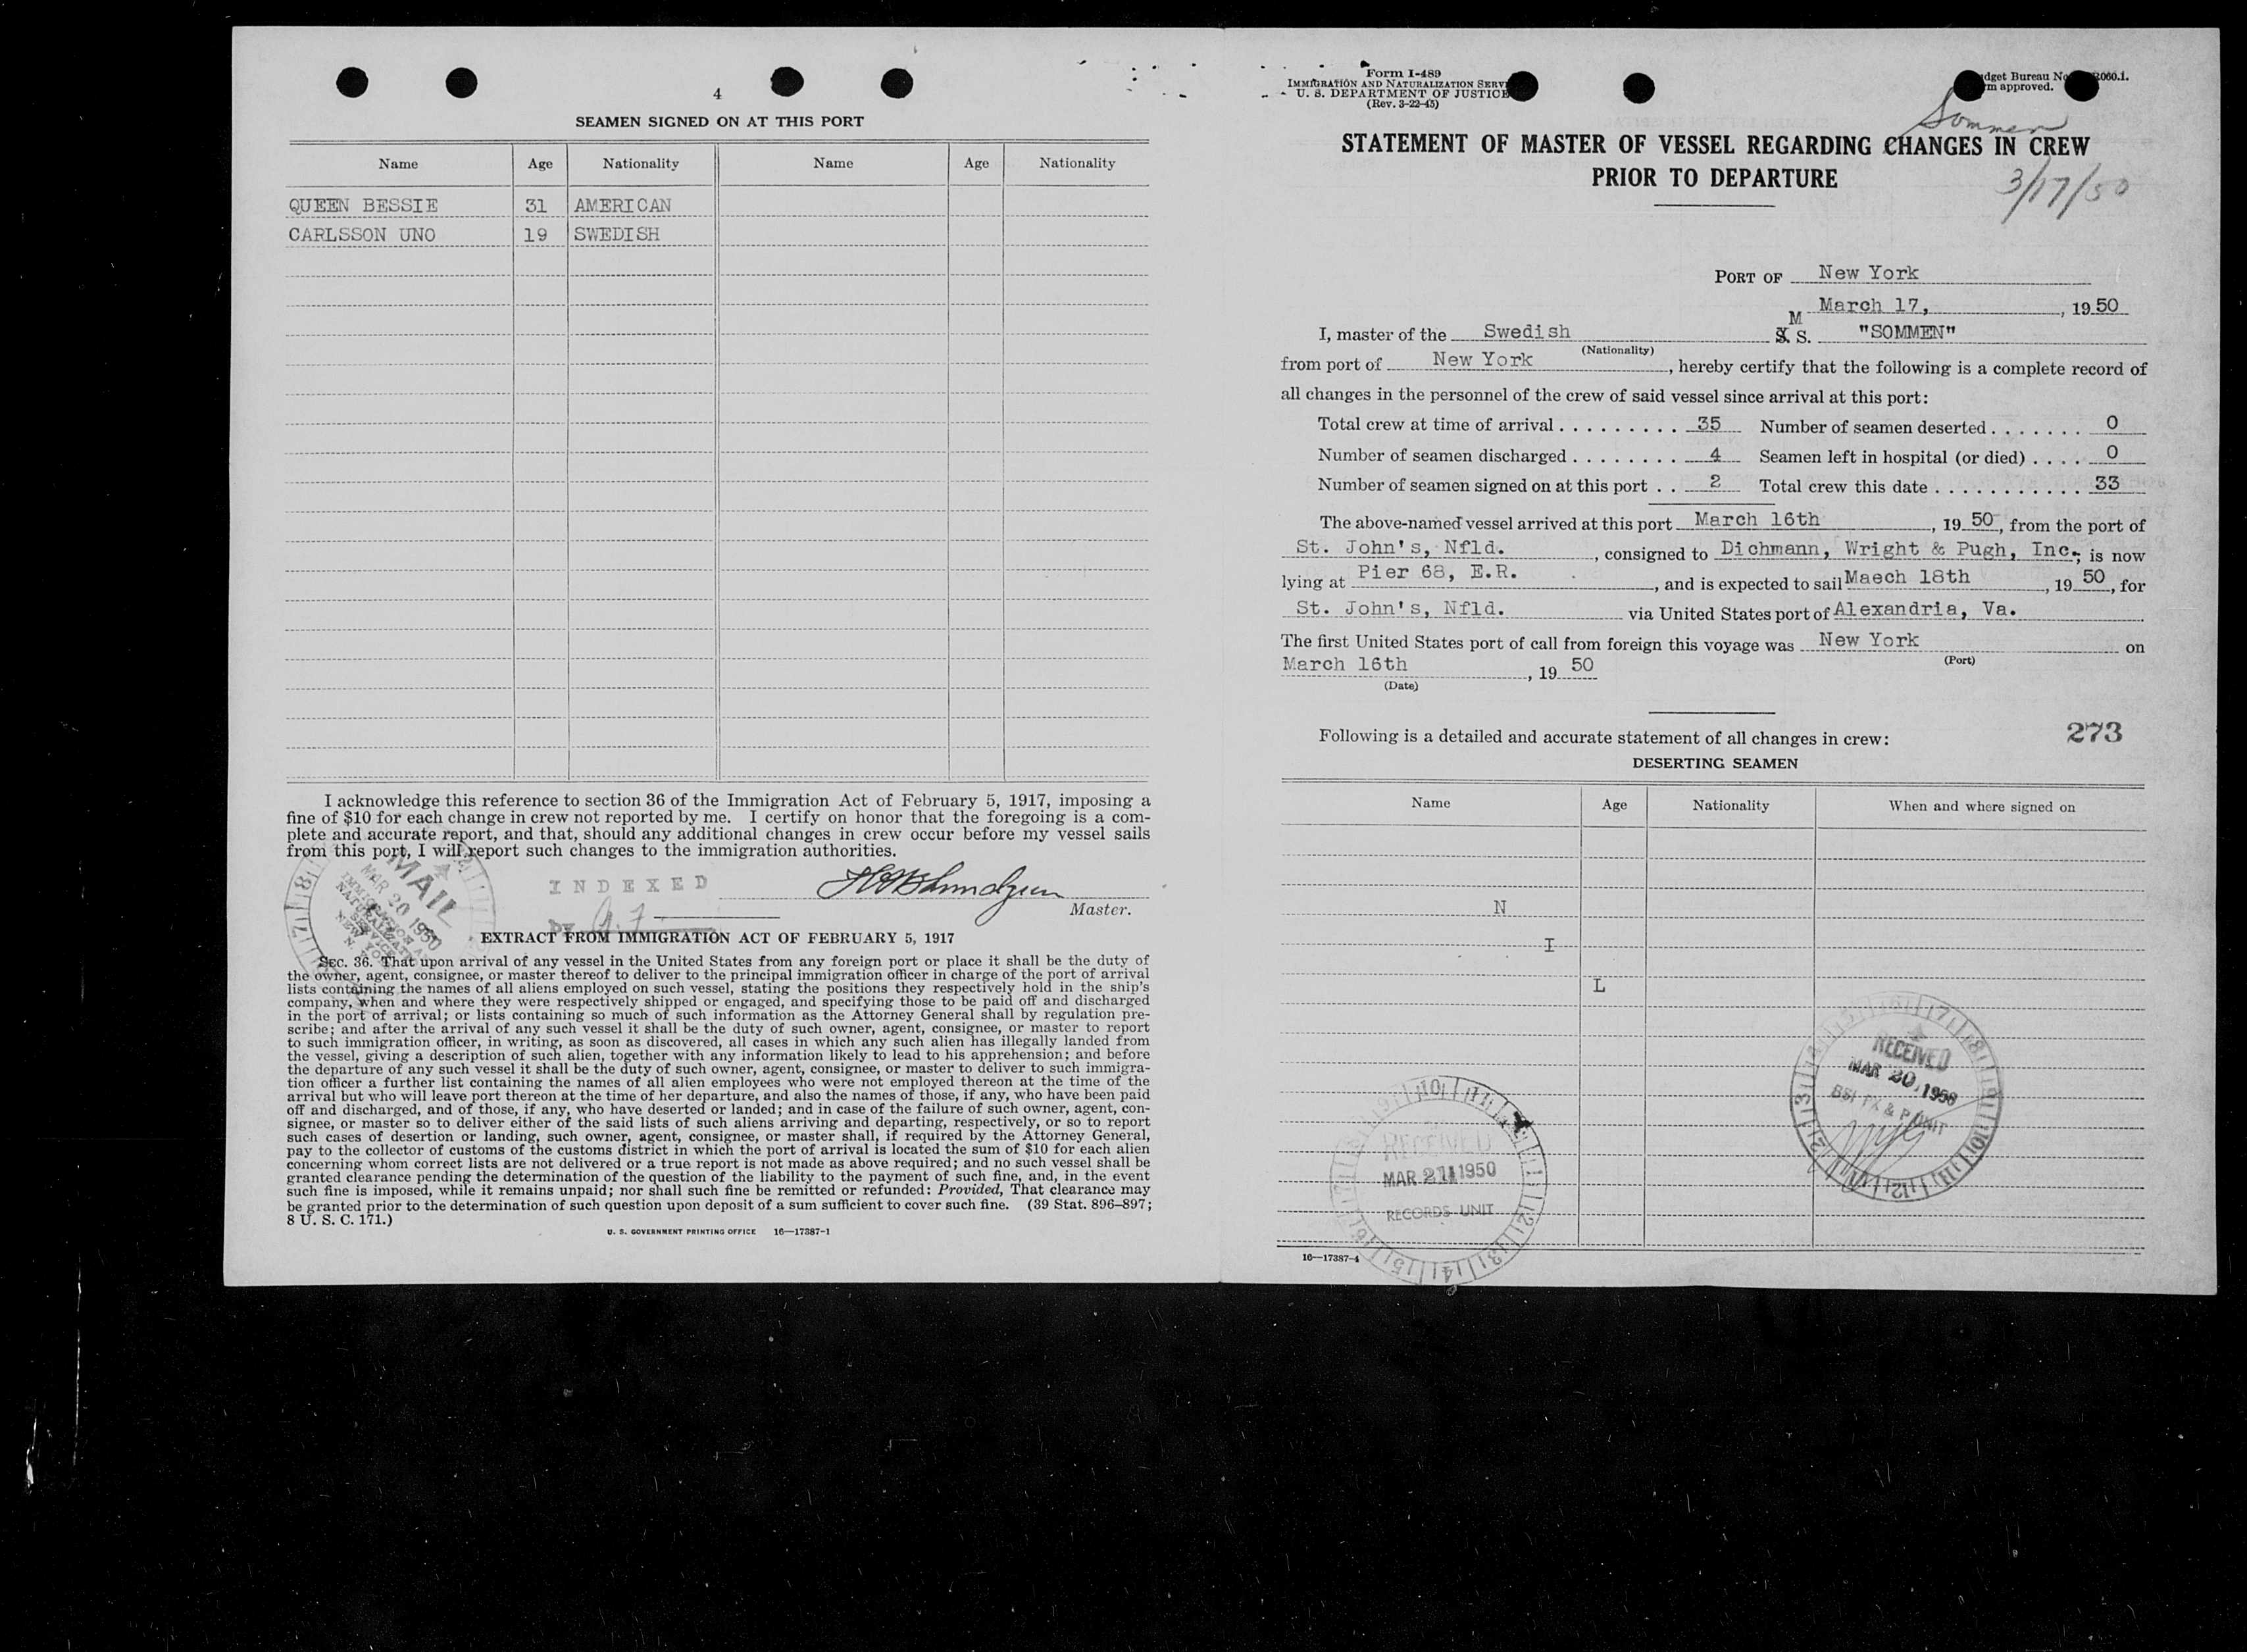 4
SEAMEN SIGNED ON AT THIS PORT
Name Age Nationality Name Age Nationality
QUEEN BESSIE 31 AMERICAN
CARLSSON UNO 19 SWEDISH
I acknowledge this reference to section 36 of the Immigration Act of February 5, 1917, imposing a
fine of $10 for each change in crew not reported by me. I certify on honor that the foregoing is a com-
plete and accurate report, and that, should any additional changes in crew occur before my vessel sails
from this port, I will report such changes to the immigration authorities.
MAIL
MAR 20 1950
IMMIGRATION &
NATURALIZATION
SERVICE
NEW YORK
N.
INDEXED
by A.F.
Master.
EXTRACT FROM IMMIGRATION ACT OF FEBRUARY 5, 1917
SEC. 36. That upon arrival of any vessel in the United States from any foreign port or place it shall be the duty of
the owner, agent, consignee, or master thereof to deliver to the principal immigration officer in charge of the port of arrival
lists containing the names of all aliens employed on such vessel, stating the positions they respectively hold in the ship's
company, when and where they were respectively shipped or engaged, and specifying those to be paid off and discharged
in the port of arrival; or lists containing so much of such information as the Attorney General shall by regulation pre-
scribe; and after the arrival of any such vessel it shall be the duty of such owner, agent, consignee, or master to report
to such immigration officer, in writing, as soon as discovered, all cases in which any such alien has illegally landed from
the vessel, giving a description of such alien, together with any information likely to lead to his apprehension; and before
the departure of any such vessel it shall be the duty of such owner, agent, consignee, or master to deliver to such immigra-
tion officer a further list containing the names of all alien employees who were not employed thereon at the time of the
arrival but who will leave port thereon at the time of her departure, and also the names of those, if any, who have been paid
off and discharged, and of those, if any, who have deserted or landed; and in case of the failure of such owner, agent, con-
signee, or master so to deliver either of the said lists of such aliens arriving and departing, respectively, or so to report
such cases of desertion or landing, such owner, agent, consignee, or master shall, if required by the Attorney General,
pay to the collector of customs of the customs district in which the port of arrival is located the sum of $10 for each alien
concerning whom correct lists are not delivered or a true report is not made as above required; and no such vessel shall be
granted clearance pending the determination of the question of the liability to the payment of such fine, and, in the event
such fine is imposed, while it remains unpaid; nor shall such fine be remitted or refunded: Provided, That clearance may
be granted prior to the determination of such question upon deposit of a sum sufficient to cover such fine. (39 Stat. 896–897;
8 U. S. C. 171.)
U. S. GOVERNMENT PRINTING OFFICE 16—17387-1
Form I-489
IMMIGRATION AND NATURALIZATION SERV
U. S. DEPARTMENT OF JUSTICE
(Rev. 3-22-45)
dget Bureau No. 060.1.
m approved.
Sommen
STATEMENT OF MASTER OF VESSEL REGARDING CHANGES IN CREW
PRIOR TO DEPARTURE
3/17/50
PORT OF New York
March 17, , 19 50
I, master of the Swedish M S. "SOMMEN"
(Nationality)
from port of New York , hereby certify that the following is a complete record of
all changes in the personnel of the crew of said vessel since arrival at this port:
Total crew at time of arrival . . . . . . . . . 35 Number of seamen deserted . . . . . . . 0
Number of seamen discharged . . . . . . . . 4 Seamen left in hospital (or died) . . . . 0
Number of seamen signed on at this port . . 2 Total crew this date . . . . . . . . . . . 33
The above-named vessel arrived at this port March 16th , 19 50, from the port of
St. John's, Nfld. , consigned to Dichmann, Wright & Pugh, Inc., is now
lying at Pier 68, E.R. , and is expected to sail Maech 18th , 19 50, for
St. John's, Nfld. via United States port of Alexandria, Va.
The first United States port of call from foreign this voyage was New York on
(Port)
March 16th , 19 50
(Date)
Following is a detailed and accurate statement of all changes in crew: 273
DESERTING SEAMEN
Name Age Nationality When and where signed on
N
I
L
RECEIVED
MAR 20 1950
BSI TX & P UNIT
RECEIVED
MAR 21 1950
RECORDS UNIT
16—17387-1